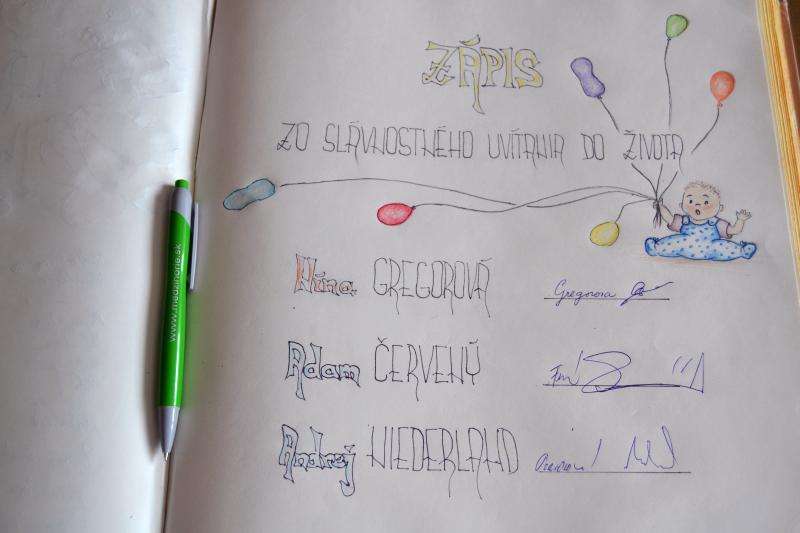 ZÁPIS
ZO SLÁVNOSTNÉHO UVÍTANIA DO ŽIVOTA
Nina GREGOROVÁ
Gregorova
Adam ČERVENÝ
Andrej NIEDERLAND
www.medzihorie.sk